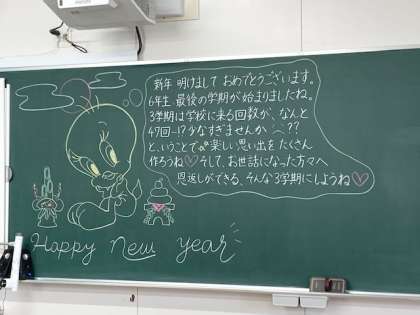 新年 明けまして おめでとうございます。
6年生 最後の学期が始まりましたね。
3学期は学校に来る回数が、なんと
47回…!? 少なすぎませんか??
と、いうことで楽しい思い出を たくさん
作ろうね♡ そして、お世話になった方々へ
恩返しができる、そんな3学期にしようね♡
Happy new year